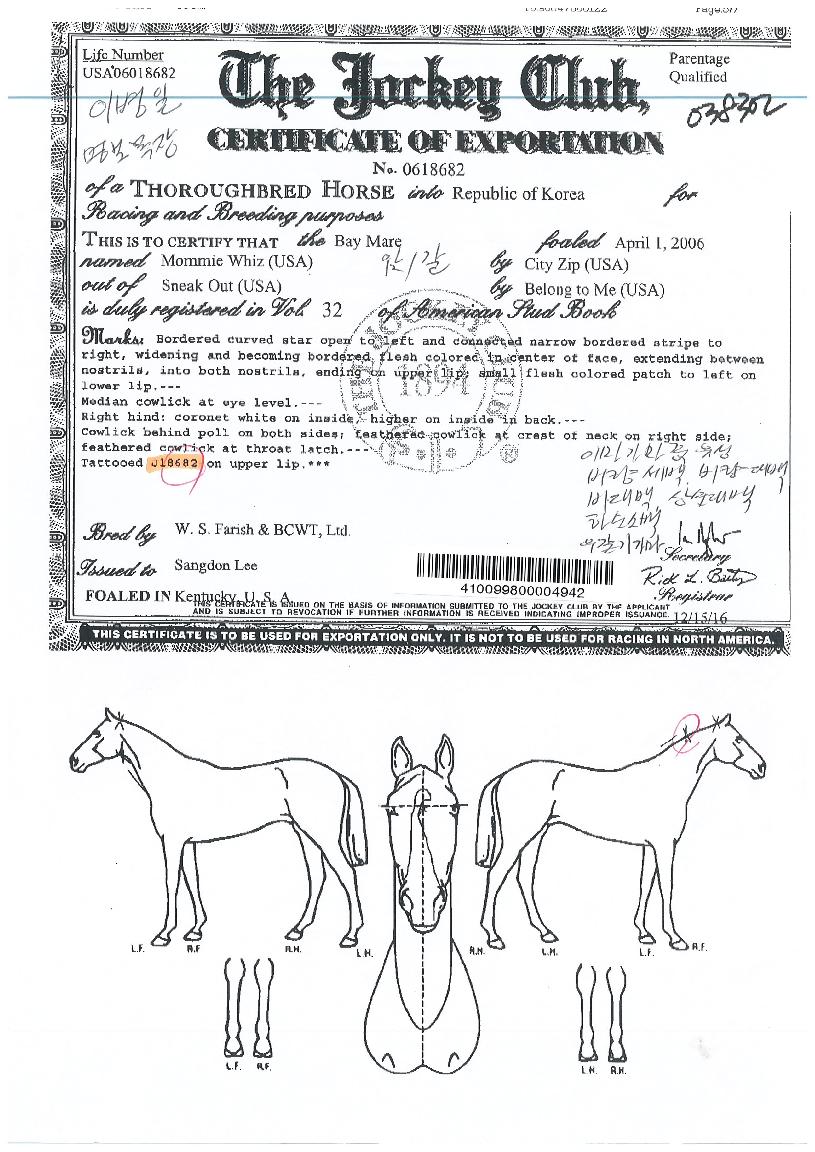 Life Number
USA06018682
The Jockey Club,
Parentage
Qualified
038302
이병일
CERTIFICATE OF EXPORTATION
No. 0618682
of a THOROUGHBRED HORSE into Republic of Korea for
Racing and Breeding purposes
THIS IS TO CERTIFY THAT the Bay Mare foaled April 1, 2006
named Mommie Whiz (USA) by City Zip (USA)
out of Sneak Out (USA) by Belong to Me (USA)
is duly registered in Vol. 32 of American Stud Book
Marks: Bordered curved star open to left and connected narrow bordered stripe to
right, widening and becoming bordered flesh colored in center of face, extending between
nostrils, into both nostrils, ending on upper lip; small flesh colored patch to left on
lower lip.---
Median cowlick at eye level.---
Right hind: coronet white on inside, higher on inside in back.---
Cowlick behind poll on both sides; feathered cowlick at crest of neck on right side;
feathered cowlick at throat latch.---
Tattooed J18682 on upper lip.***
THE JOCKEY CLUB
1894
®
Bred by W. S. Farish & BCWT, Ltd.
Secretary
Issued to Sangdon Lee
410099800004942
Registrar
FOALED IN Kentucky, U. S. A.
THIS CERTIFICATE IS ISSUED ON THE BASIS OF INFORMATION SUBMITTED TO THE JOCKEY CLUB BY THE APPLICANT
AND IS SUBJECT TO REVOCATION IF FURTHER INFORMATION IS RECEIVED INDICATING IMPROPER ISSUANCE. 12/15/16
THIS CERTIFICATE IS TO BE USED FOR EXPORTATION ONLY. IT IS NOT TO BE USED FOR RACING IN NORTH AMERICA.
L.F. R.F R.H. L.H. R.H. L.H. L.F. R.F.
L.F. R.F. L.H. R.H.